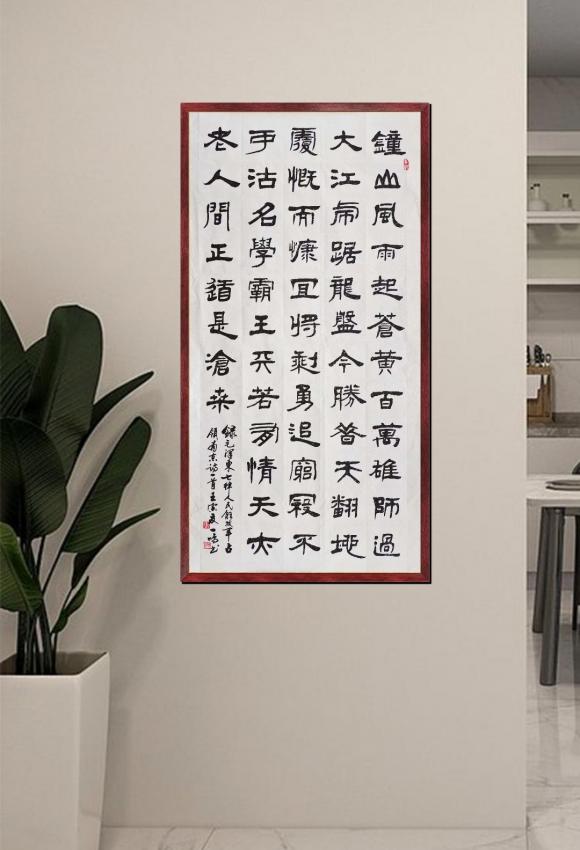 鐘山風雨起蒼黃百萬雄師過
大江虎踞龍盤今勝昔天翻地
覆慨而慷宜將剩勇追窮寇不
可沽名學霸王天若有情天亦
老人間正道是滄桑
錄毛澤東七律人民解放軍占
領南京詩一首